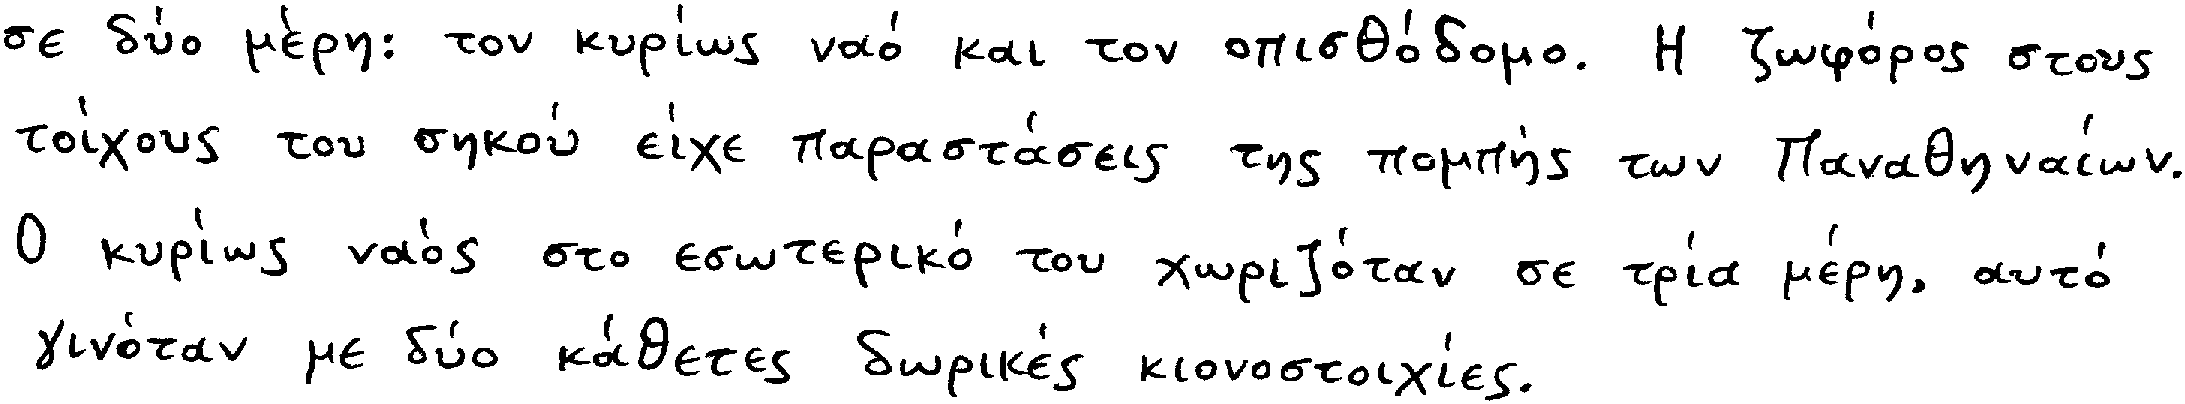 σε δύο μέρη: τον κυρίως ναό και τον οπισθόδομο. Η ζωφόρος στους
τοίχους του σηκού είχε παραστάσεις της πομπής των Παναθηναίων.
Ο κυρίως ναός στο εσωτερικό του χωριζόταν σε τρία μέρη, αυτό
γινόταν με δύο κάθετες δωρικές κιονοστοιχίες.